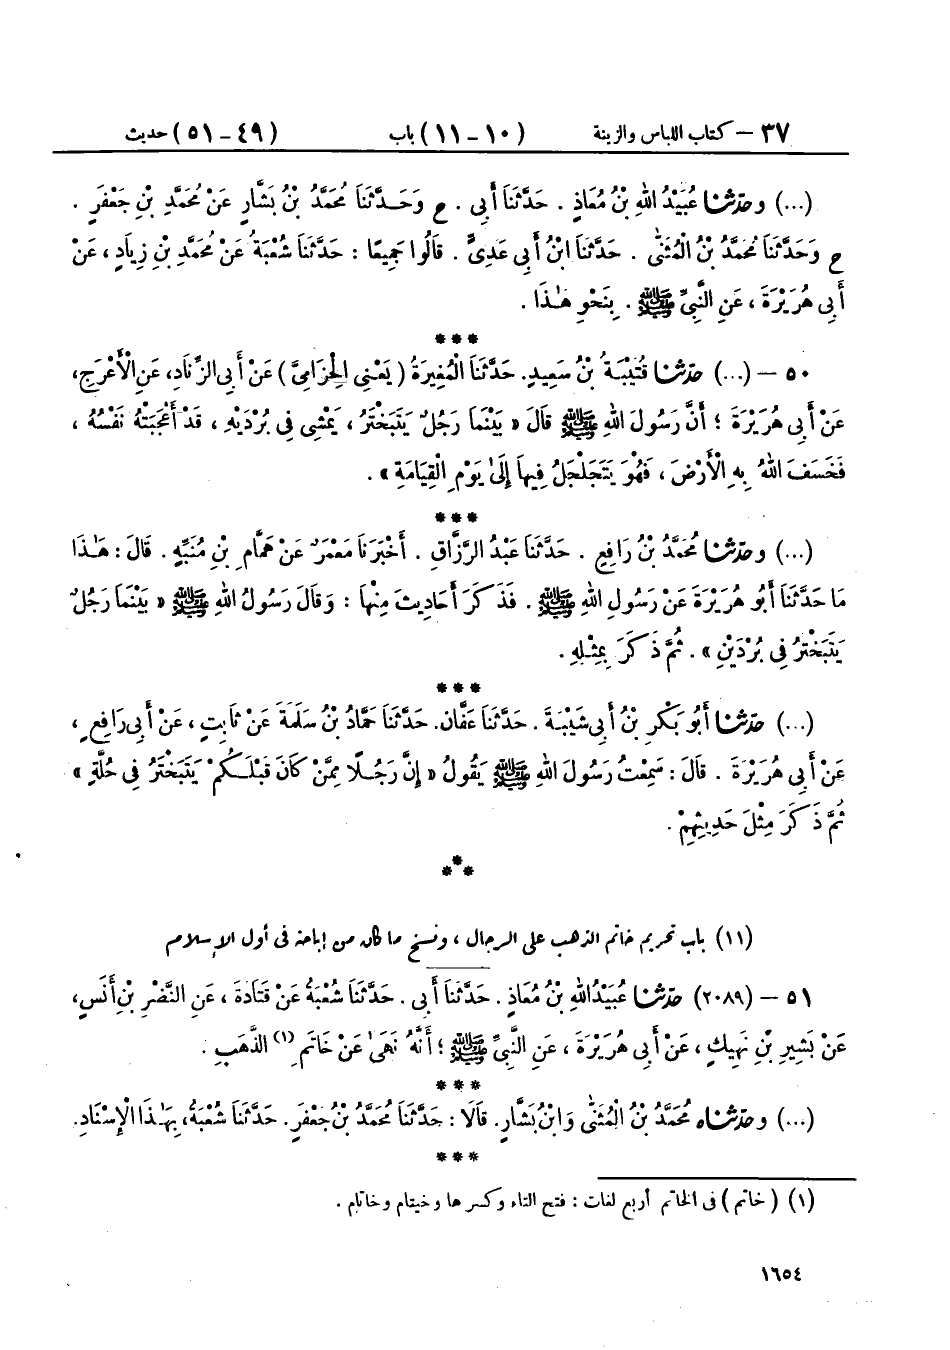 ٣٧ — كتاب اللباس والزينة (١٠ – ١١) باب (٤٩ – ٥١) حديث
(...) وحدّثنا عُبَيْدُ اللهِ بْنُ مُعَاذٍ . حَدَّثَنَا أَبِي . ح وَحَدَّثَنَا مُحَمَّدُ بْنُ بَشَّارٍ عَنْ مُحَمَّدِ بْنِ جَعْفَرٍ .
ح وَحَدَّثَنَا مُحَمَّدُ بْنُ الْمُثَنَّى . حَدَّثَنَا ابْنُ أَبِي عَدِيٍّ . قَالُوا جَمِيعًا : حَدَّثَنَا شُعْبَةُ عَنْ مُحَمَّدِ بْنِ زِيَادٍ ، عَنْ
أَبِي هُرَيْرَةَ ، عَنِ النَّبِيِّ ﷺ . بِنَحْوِ هٰذَا .
***
٥٠ — (...) حدّثنا قُتَيْبَةُ بْنُ سَعِيدٍ. حَدَّثَنَا الْمُغِيرَةُ ( يَعْنِي الْحِزَامِيَّ ) عَنْ أَبِي الزِّنَادِ، عَنِ الْأَعْرَجِ،
عَنْ أَبِي هُرَيْرَةَ ؛ أَنَّ رَسُولَ اللهِ ﷺ قَالَ « بَيْنَمَا رَجُلٌ يَتَبَخْتَرُ ، يَمْشِي فِي بُرْدَيْهِ ، قَدْ أَعْجَبَتْهُ نَفْسُهُ ،
فَخَسَفَ اللهُ بِهِ الْأَرْضَ ، فَهُوَ يَتَجَلْجَلُ فِيهَا إِلَىٰ يَوْمِ الْقِيَامَةِ » .
***
(...) وحدّثنا مُحَمَّدُ بْنُ رَافِعٍ . حَدَّثَنَا عَبْدُ الرَّزَّاقِ . أَخْبَرَنَا مَعْمَرٌ عَنْ هَمَّامِ بْنِ مُنَبِّهٍ . قَالَ : هٰذَا
مَا حَدَّثَنَا أَبُو هُرَيْرَةَ عَنْ رَسُولِ اللهِ ﷺ . فَذَكَرَ أَحَادِيثَ مِنْهَا : وَقَالَ رَسُولُ اللهِ ﷺ « بَيْنَمَا رَجُلٌ
يَتَبَخْتَرُ فِي بُرْدَيْنِ » . ثُمَّ ذَكَرَ بِمِثْلِهِ .
***
(...) حدّثنا أَبُو بَكْرِ بْنُ أَبِي شَيْبَةَ . حَدَّثَنَا عَفَّانُ. حَدَّثَنَا حَمَّادُ بْنُ سَلَمَةَ عَنْ ثَابِتٍ ، عَنْ أَبِي رَافِعٍ ،
عَنْ أَبِي هُرَيْرَةَ . قَالَ : سَمِعْتُ رَسُولَ اللهِ ﷺ يَقُولُ « إِنَّ رَجُلًا مِمَّنْ كَانَ قَبْلَكُمْ يَتَبَخْتَرُ فِي حُلَّةٍ »
ثُمَّ ذَكَرَ مِثْلَ حَدِيثِهِمْ .
***
(١١) باب تحريم خاتم الذهب على الرجال ، ونسخ ما كان من إباحته فى أول الإسلام
٥١ — (٢٠٨٩) حدّثنا عُبَيْدُ اللهِ بْنُ مُعَاذٍ . حَدَّثَنَا أَبِي . حَدَّثَنَا شُعْبَةُ عَنْ قَتَادَةَ ، عَنِ النَّضْرِ بْنِ أَنَسٍ،
عَنْ بَشِيرِ بْنِ نَهِيكٍ ، عَنْ أَبِي هُرَيْرَةَ ، عَنِ النَّبِيِّ ﷺ ؛ أَنَّهُ نَهَىٰ عَنْ خَاتَمِ (١) الذَّهَبِ .
***
(...) وحدّثناه مُحَمَّدُ بْنُ الْمُثَنَّى وَابْنُ بَشَّارٍ. قَالَا : حَدَّثَنَا مُحَمَّدُ بْنُ جَعْفَرٍ. حَدَّثَنَا شُعْبَةُ، بِهٰذَا الْإِسْنَادِ.
***
(١) ( خاتم ) فى الخاتم أربع لغات : فتح التاء وكسرها وخيتام وخاتام .
١٦٥٤